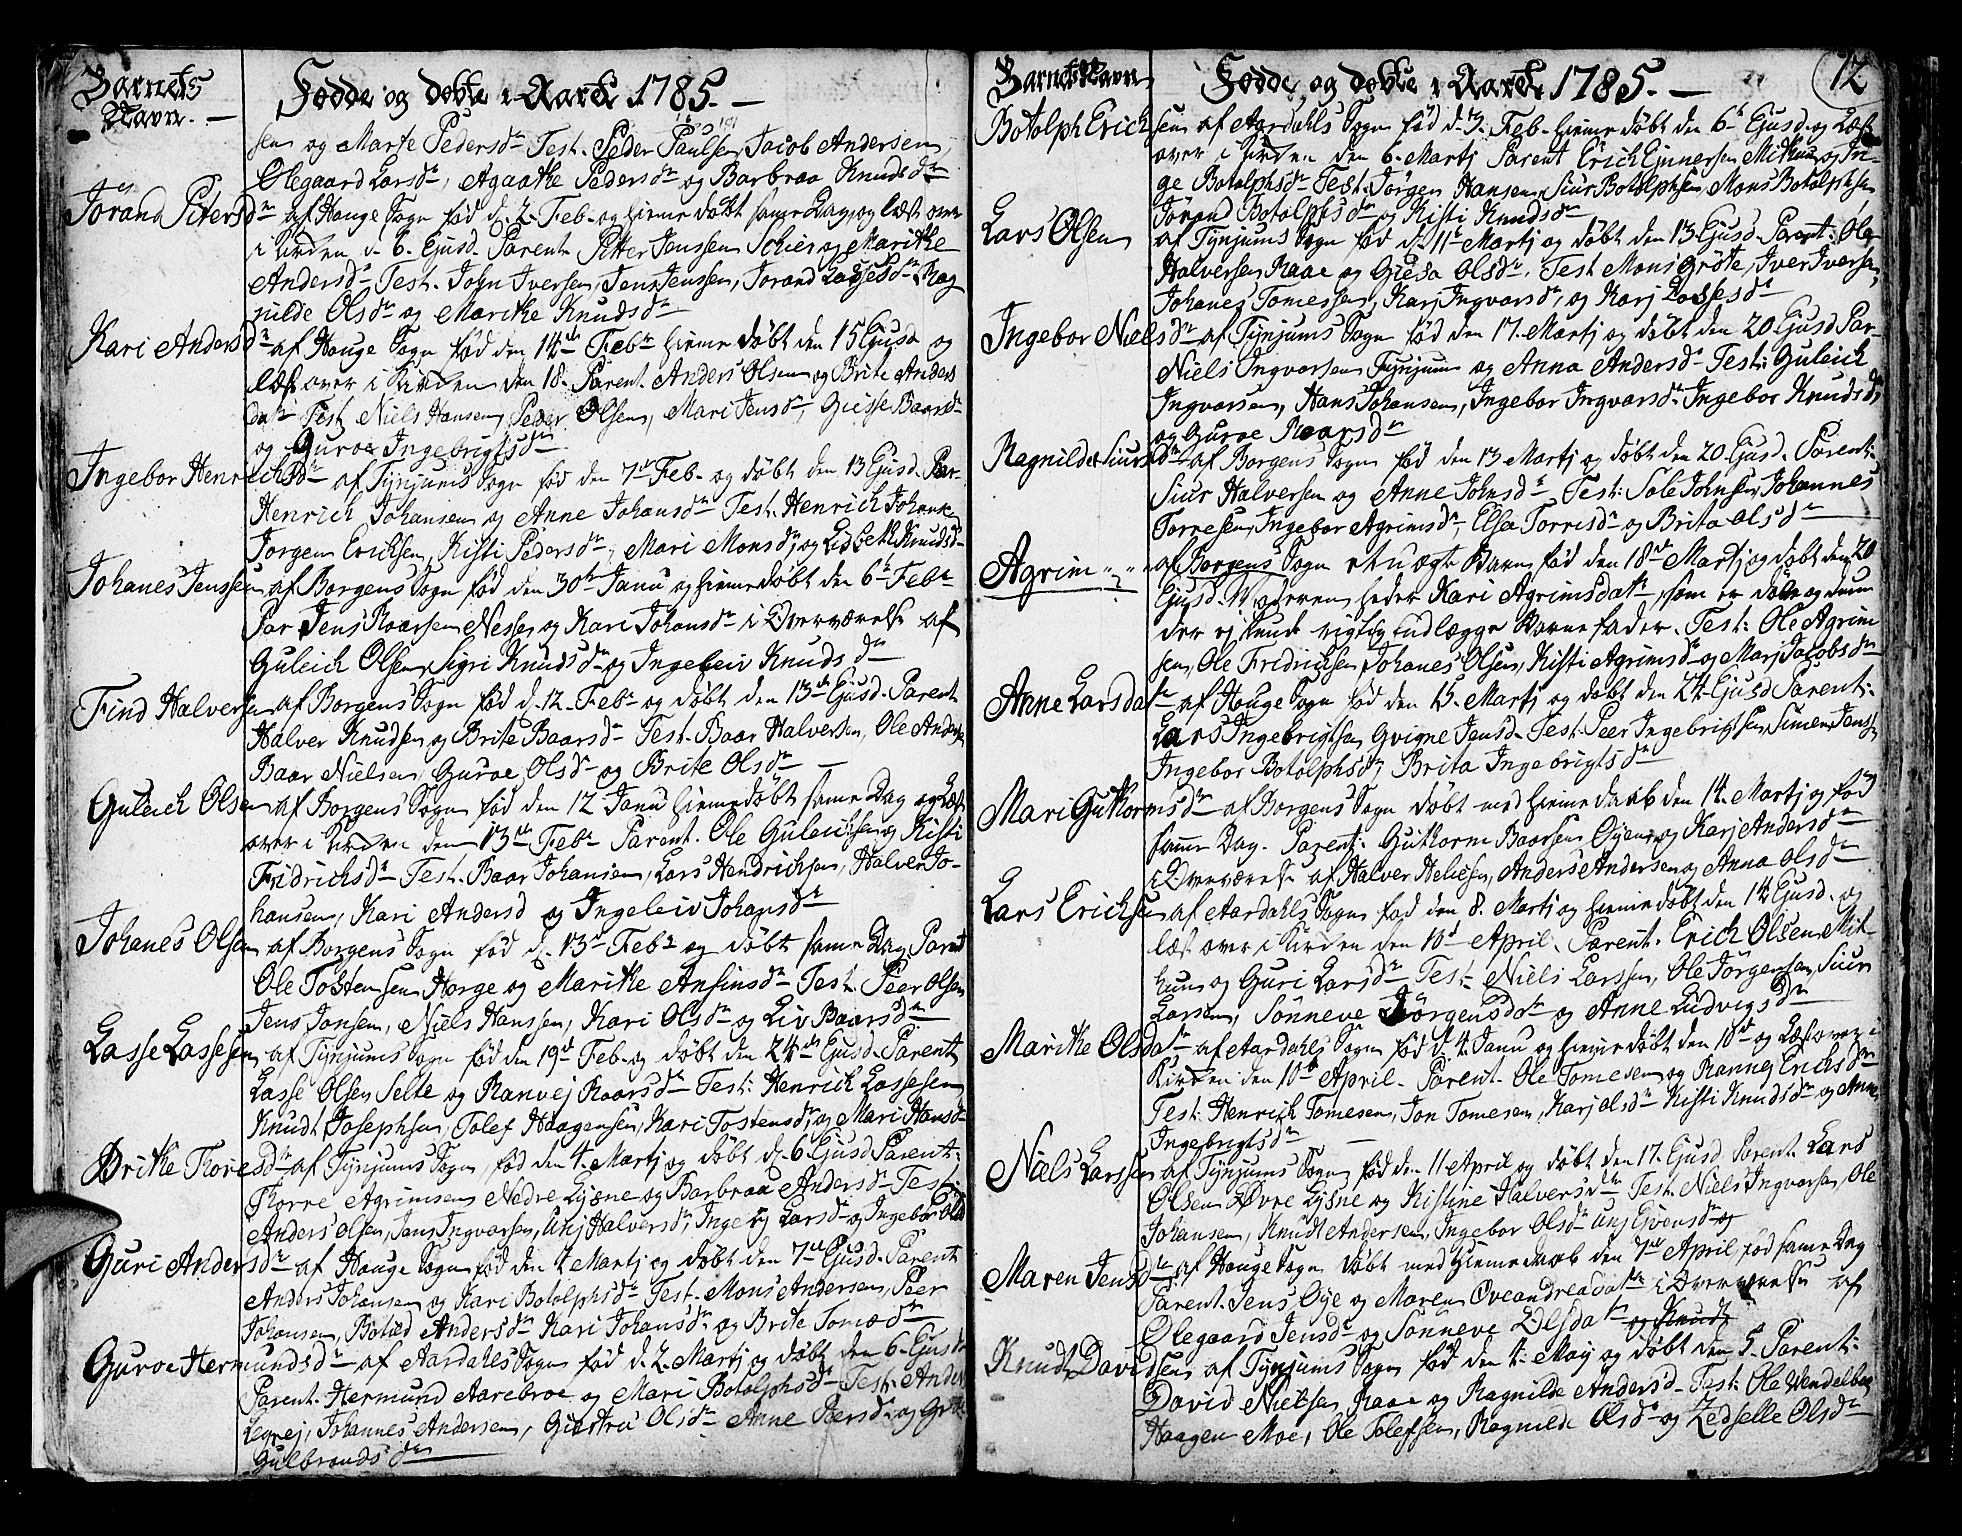 Barnets
Navn.
Fødde og døbte i Aaret 1785.
sen og Marte Pedersdr Test. Peder Paulsen, Jacob Andersen,
Olegaard Larsdr, Agaathe Pedersdr og Barbraa Knudsdr
Jorand Pitersdr af Houge Sogn fød d. 2. Feb. og hiemedøbt samme Dag, og læst over
i Kirken d. 6. Ejusd. Parent. Pitter Jenssen og Marithe
Andersdr. Test. John Iversen, Jens Jenssen, Jorand Lassesdr Rag
nilde Olsdr og Marithe Knudsdr
Kari Andersdr af Houge Sogn fød den 14de Febr hiemedøbt den 15 Ejusd og
læst over i Kirken den 18. Parent. Anders Olsen og Brite Anders
datr Test. Niels Hansen, Peder Olsen, Mari Jensdr, Giesse Baarsdr
og Guroe Ingebrigtsdr
Ingebor Henrichsdr af Tynjums Sogn fød den 7de Feb. og døbt den 13 Ejusd. Par.
Henrich Johansen og Anne Johansdr Test. Henrich
Jorgen Erichsen, Kisti Pedersdr, Mari Monsdr, og Lisbeth Knudsdr
Johanes Jenssen af Borgens Sogn fød den 30te Janu og hiemedøbt den 6te Febr
Par Jens Roarsen Nesse og Kari Johansdr i Overværelse af
Guleich Olsen, Sigri Knudsdr og Ingeleiv Knudsdr
Find Halversen af Borgens Sogn fød d. 12. Febr og døbt den 13de Ejusd. Parent
Halver Knudsen og Brite Baarsdr Test. Baar Halversen, Ole Andersen
Baar Nielsen, Guroe Olsdr og Brite Olsdr
Guleich Olsen af Borgens Sogn fød den 12 Janu hiemedøbt samme Dag og læst
over i Kirken den 13de Febr Parent. Ole Guleichsen og Kisti
Fridrichsdr Test. Baar Johansen, Lars Hendrichsen, Halver Jo-
hansen, Kari Andersd og Ingeleiv Johansdr
Johanes Olsen af Borgens Sogn fød d. 13de Febr og døbt samme Dag, Parent
Ole Tostensen Horge og Marithe Ansinsdr Test. Peer Olsen
Jens Jonsen, Niels Hanssen, Kari Olsdr og Liv Baarsdr
Lasse Lassesen af Tynjums Sogn fød den 19de Feb. og døbt den 24de Ejusd. Parent
Lasse Olsen Selte og Ranvej Roarsdr Test: Henrich Lassesen
Knudt Josephsen, Tolef Haagensen, Kari Tostensdr, og Mari Hansdr
Brithe Thoresdr af Tynjums Sogn, fød den 4. Martj og døbt d. 6 Ejusd Parent:
Thorre Agrimsen Nedre Lysne og Barbraa Andersdr Test:
Anders Olsen, Jens Ingvorsen, Unj Halversdr, Ingebor Larsdr og Ingebor Ols
Guri Andersdr af Houge Sogn fød den 4 Martj og døbt den 7de Ejusd. Parent
Anders Johansen og Kari Botolphsdr Test. Mons Andersen, Peer
Johansen, Botild Andersdr Kari Johansdr og Brite Tomædr
Guroe Hermundsdr af Aardahls Sogn fød d. 2. Martj og døbt den 6. Ejusd
Parent. Hermund Aarebroe og Mari Botolphsdr Test: Anders
Legrej, Johannes Andersen, Giertru Olsdr Anne Peersdr og
Gulbrandsdr
Barnets Navn
Fødde og døbte i Aaret 1785.
12
Botolph Erichsen af Aardahls Sogn fød d. 3. Feb. hiemedøbt den 6te Ejusd. og læst
over i Kirken den 6. Martj Parent Erich Ejnersen Mithun og In-
ge Botolphsdr Test. Jørgen Hansen, Siur Botolphsen, Mons Botolphsen
Jørand Botolphsdr og Kisti Knudsdr
Lars Olsen af Tynjums Sogn fød d. 11te Martj og døbt den 13. Ejusd. Parent: Ole
Halversen Raae og Giesa Olsdr. Test Mons Grøte, Iver Iversen,
Johanes Tomessen, Karj Ingvarsdr, og Karj Lassesdr
Ingebor Nielsdr af Tynjums Sogn fød den 17. Martj og døbt den 20 Ejusd. Par-
Niels Ingvorsen Tynjum og Anna Andersdr Test: Guleich
Ingvorsen, Hans Johansen, Ingebor Ingvarsdr Ingebor Knudsdr
og Guroe Roarsdr
Ragnilde Siursdr af Borgens Sogn fød den 13 Martj og døbt den 20 Ejusd. Parent:
Siur Halversen og Anne Johnsdr Test: Sole Johnsen, Johannes
Torresen, Ingebor Agrimsdr, Elsa Torrisdr og Brita Olsdr
Agrim af Borgens Sogn et uægte Barn fød den 18de Martj og døbt den 20
Ejusd. Moderen heder Kari Agrimsdatr, som er døv og dum
der ej kunde rigtig udlægge Barnefader. Test: Ole Agrim
sen, Ole Fridrichsen, Johanes Olsen, Kisti Agrimsdr og Marj Jacobsdr
Anne Larsdatr af Houge Sogn fød den 15. Martj og døbt den 24. Ejusd Parent:
Lars Ingebrigtsen Gvigne Jensd. Test. Peer Ingebrigtsen, Simen Jansen
Ingebor Botolphsdr, Brita Ingebrigtsdr
Mari Guthormsdr af Borgens Sogn døbt med hiemedaab den 14. Martj og fød
samme Dag. Parent: Guthorm Baarsen Øyene og Karj Andersdr
i Overværelse af Halver Helgesen, Anders Andersen og Anna Olsdr
Lars Erichsen af Aardahls Sogn fød den 8. Martj og hiemedøbt den 14 Ejusd. og
læst over i Kirken den 10de April. Parent. Erich Olsen Mit
hun og Guri Larsdr Test: Niels Larssen, Ole Jørgensen, Siur
Larsen, Sønneve Jörgensdr og Anne Ludvigsdr
Marithe Olsdatr af Aardahls Sogn fød d. 4. Janu og hiemedøbt den 10de og læst over i
Kirken den 10de April. Parent. Ole Tomesen og Rannej Erichsdr
Test: Henrich Tomesen, Jon Tomesen, Karj Olsdr Kisti Knudsdr og Anne
Ingebrigtsdr
Niels Larssen af Tynjums Sogn fød den 11 April og døbt den 17. Ejusd. Parent. Lars
Olsen Øvre Lysne og Kistine Halversdr Test. Niels Ingvorsen, Ole
Johansen, Knudt Andersen, Ingebor Olsdr Unj Ejvensdr og
Maren Jensdr af Houge Sogn døbt med Hiemedaab den 7de April, fød samme Dag
Parent. Jens Øye og Maren Oveandreadatr i Overværelse af
Olegaard Jensdr og Sønneve datr og Knudt
Knudt Davidsen af Tynjums Sogn fød den 4. Maij og døbt den 5. Parent:
David Nielsen Raae og Ragnilde Andersd. Test: Ole Wendelboe
Haagen Moe, Ole Tolefsen, Ragnilde Olsdr og Zedselle Olsdr